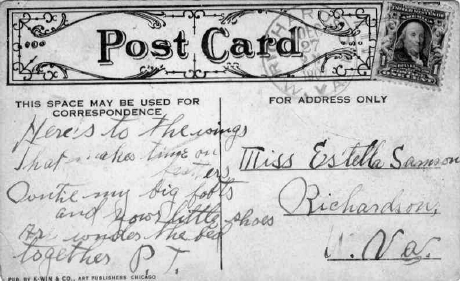 Post Card
THIS SPACE MAY BE USED FOR
CORRESPONDENCE
FOR ADDRESS ONLY
Here is to the wings
That makes time on
Until my big foots
and your little shoes
Ar under the bed
together P. T.
Miss Estella Samson
Richardson,
W. Va.
DEC
27
PUB. BY K-WIN & CO., ART PUBLISHERS CHICAGO